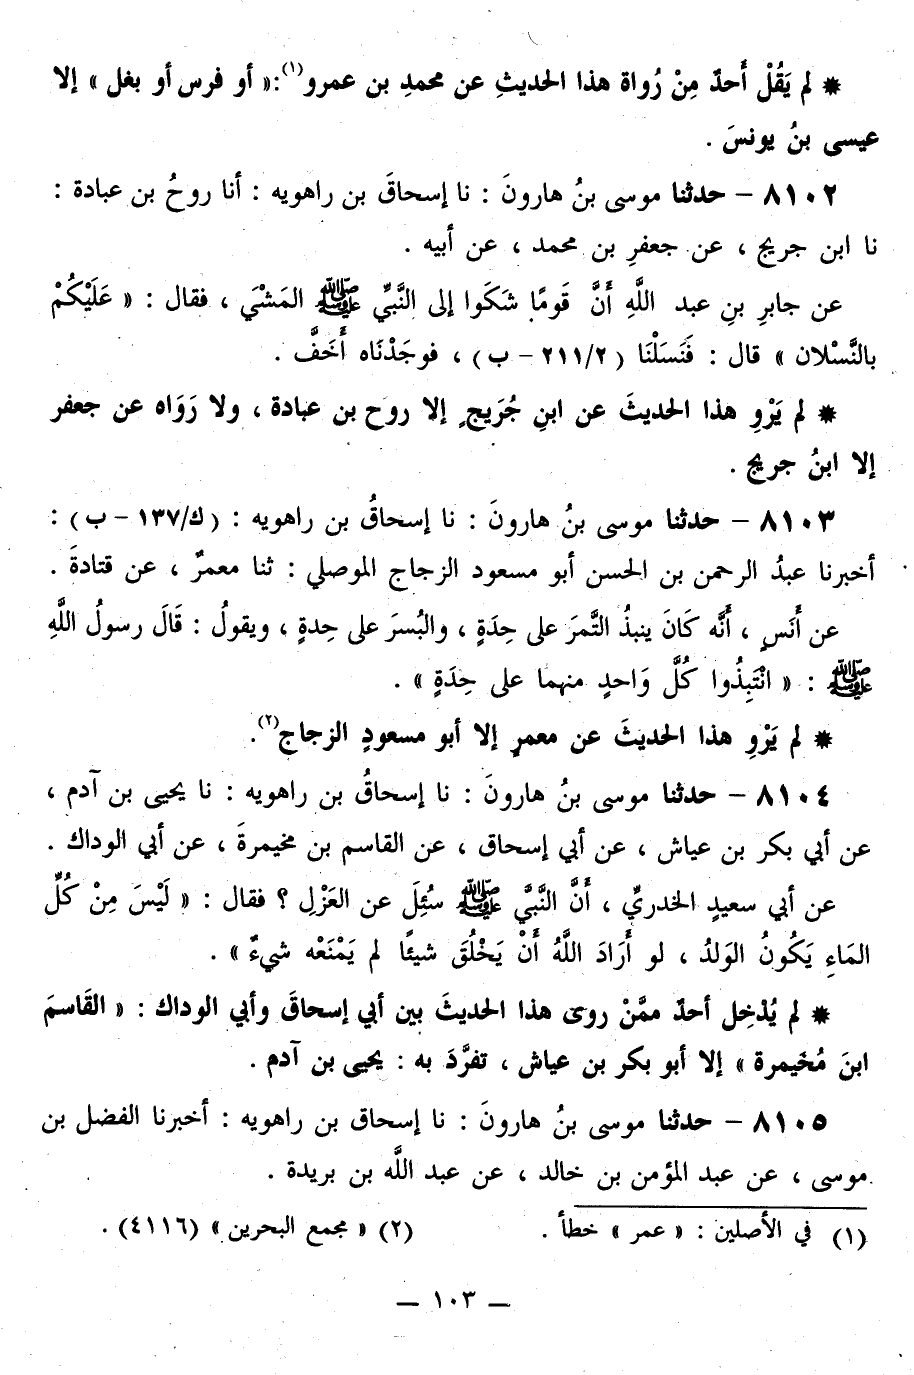 * لم يَقُلْ أَحدٌ مِنْ رُواة هذا الحديثِ عن محمدِ بن عمرو(١):« أو فرس أو بغل » إلا
عيسى بنُ يونسَ .
٨١٠٢ – حدثنا موسى بنُ هارونَ : نا إسحاقَ بن راهويه : أنا روحُ بن عبادة :
نا ابن جريج ، عن جعفرِ بن محمد ، عن أبيه .
عن جابرِ بنِ عبد اللَّهِ أَنَّ قَومًا شَكَوا إلى النَّبيِّ ﷺ المَشْيَ ، فقال : « عَلَيْكُمْ
بالنَّسْلان » قال : فَنَسَلْنَا ( ٢١١/٢ – ب ) ، فوجَدْنَاه أَخَفَّ .
* لم يَرْوِ هذا الحديثَ عن ابنِ جُرَيجٍ إلا روح بن عبادة ، ولا رَوَاه عن جعفر
إلا ابنُ جريج .
٨١٠٣ – حدثنا موسى بنُ هارونَ : نا إسحاقُ بن راهويه : ( ك/١٣٧ – ب ) :
أخبرنا عبدُ الرحمن بن الحسن أبو مسعود الزجاج الموصلي : ثنا معمرٌ ، عن قتادةَ .
عن أَنَسٍ ، أَنَّه كَانَ ينبذُ التَّمرَ على حِدَةٍ ، والبُسرَ على حِدةٍ ، ويقولُ : قَالَ رسولُ اللَّهِ
ﷺ : « انْتَبِذُوا كُلَّ وَاحدٍ منهما على حِدَةٍ » .
* لم يَرْوِ هذا الحديثَ عن معمرٍ إلا أبو مسعودٍ الزجاج(٢).
٨١٠٤ – حدثنا موسى بنُ هارونَ : نا إسحاقُ بن راهويه : نا يحيى بن آدم ،
عن أبي بكر بن عياش ، عن أبي إسحاق ، عن القاسم بن مخيمرةَ ، عن أبي الوداك .
عن أبي سعيدٍ الخدريِّ ، أَنَّ النَّبيَّ ﷺ سُئِلَ عن العَزْلِ ؟ فقال : « لَيْسَ مِنْ كُلِّ
المَاءِ يَكُونُ الوَلدُ ، لو أَرَادَ اللَّهُ أَنْ يَخْلُقَ شيئًا لم يَمْنَعْه شيءٌ » .
* لم يُدْخِل أحدٌ ممَّنْ روى هذا الحديثَ بين أبي إسحاقَ وأبي الوداك : « القَاسمَ
ابنَ مُخَيمرة » إلا أبو بكر بن عياش ، تفرَّدَ به : يحيى بن آدم .
٨١٠٥ – حدثنا موسى بنُ هارونَ : نا إسحاق بن راهويه : أخبرنا الفضل بن
موسى ، عن عبد المؤمن بن خالد ، عن عبد اللَّه بن بريدة .
(١) في الأصلين : « عمر » خطأ . (٢) « مجمع البحرين » (٤١١٦) .
– ١٠٣ –